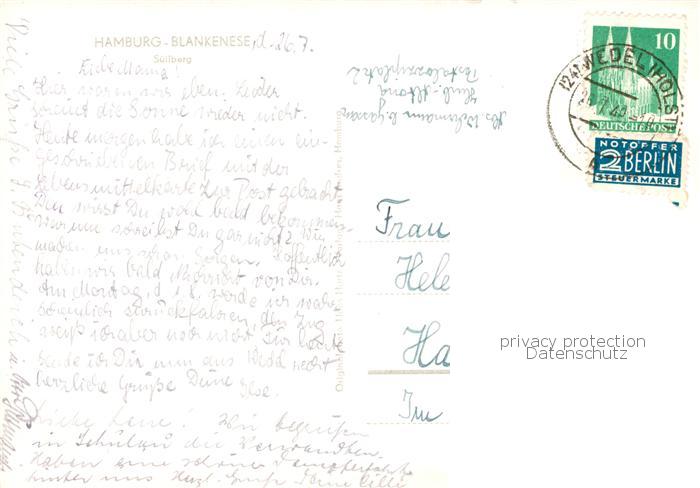 HAMBURG - BLANKENESE, d. 26.7.
Süllberg
Liebe Mama!
Hier waren wir eben. Leider
scheint die Sonne wieder nicht.
Heute morgen habe ich einen ein-
geschriebenen Brief mit der
Lebensmittelkarte zur Post gebracht.
Den wirst Du wohl bald bekommen.
Warum schreibst Du gar nicht? Wir
machen uns schon Sorgen. Hoffentlich
haben wir bald Nachricht von Dir.
Am Montag, d. 1.8. werde ich wahr-
scheinlich zurückfahren, den Zug
weiß ich aber noch nicht. Für heute
sende ich Dir nun aus Wedel recht
herzliche Grüße Deine
Ilse.
Liebe Lene! Wir begrüßen
in Schulau die Verwandten.
Haben eine schöne Dampferfahrt
hinter uns. Herzl. Gruß Deine Cilli
Viele Grüße
10
DEUTSCHE POST
NOTOPFER
2 BERLIN
STEUERMARKE
(24) WEDEL (HOLST)
Frau
Hele
Ha
Im
privacy protection
Datenschutz